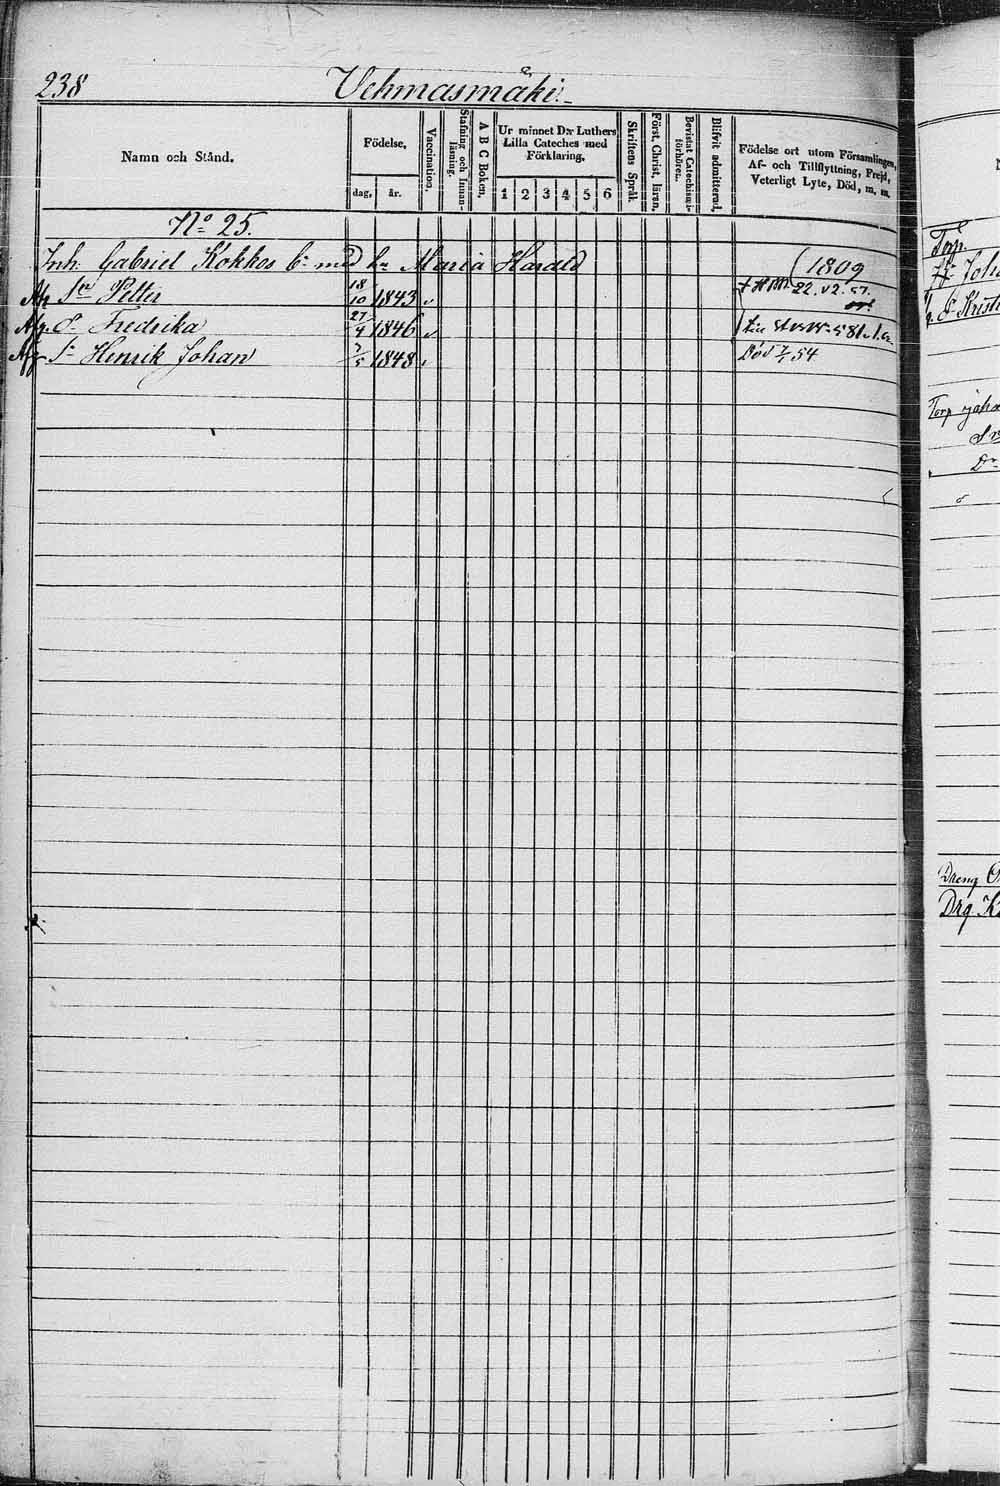 238 Vehmasmäki.
Namn och Stånd.
Födelse,
dag, år.
Vaccination.
Stafning och Innan-läsning.
A B C Boken.
Ur minnet D:r Luthers Lilla Cateches med Förklaring,
1 2 3 4 5 6
Skriftens Språk
Först. Christ. läran.
Bevistat Catechismi-förhören.
Blifvit admitterad,
Födelse ort utom Församlingen,
Af- och Tillflyttning, Frejd,
Veterligt Lyte, Död, m. m.
No 25.
Inh: Gabriel Kokkos med Maria Harald (1809
Sn Petter 18/10 1843 22. 57.
Fredrika 27/4 1846
Henrik Johan 1848 Död 54
Torp.
Torp Joha
Dreng
Drg